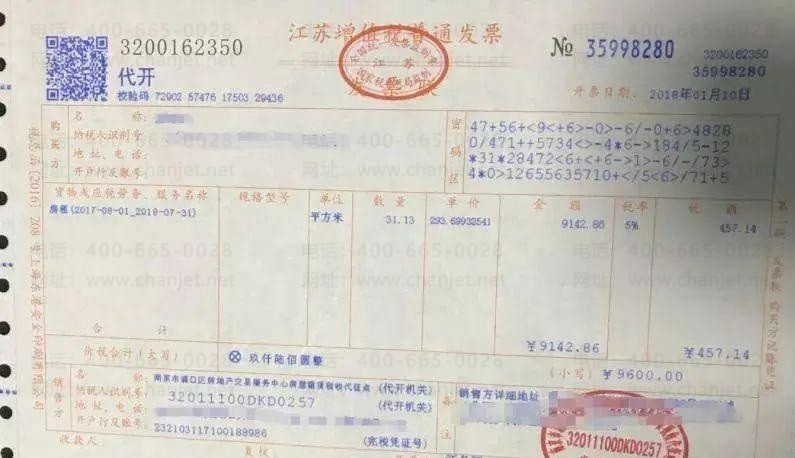 3200162350
代开
校验码 72902 57476 17503 29436
江苏增值税普通发票
全国统一发票监制章
江苏
国家税务总局监制
№ 35998280
3200162350
35998280
开票日期: 2018年01月10日
购买方
名 称:
纳税人识别号:
地 址、电 话:
开户行及账号:
密码区
47+56+<9<+6>-0>-6/-0+6>4828
0/471++5734<>-4*6->184/5-12
*31*28472<6+<+6->1>-6/-/73>
4*0>12655635710+</5<6>/71+5
货物或应税劳务、服务名称 规格型号 单位 数 量 单 价 金 额 税率 税 额
房租(2017-08-01_2018-07-31) 平方米 31.13 293.69932541 9142.86 5% 457.14
合 计 ¥9142.86 ¥457.14
价税合计(大写) ⊗ 玖仟陆佰圆整 (小写) ¥9600.00
销售方
名 称: 南京市浦口区房地产交易服务中心房屋租赁税收代征点 (代开机关)
纳税人识别号: 32011100DKD0257 (代开机关)
地 址、电 话:
开户行及账号: 232103117100188986 (完税凭证号)
备注
销售方详细地址:
32011100DKD0257
收款人:
复核:
第二联 发票联 购买方记账凭证
电话: 400-665-0028
网址: www.chanjet.net